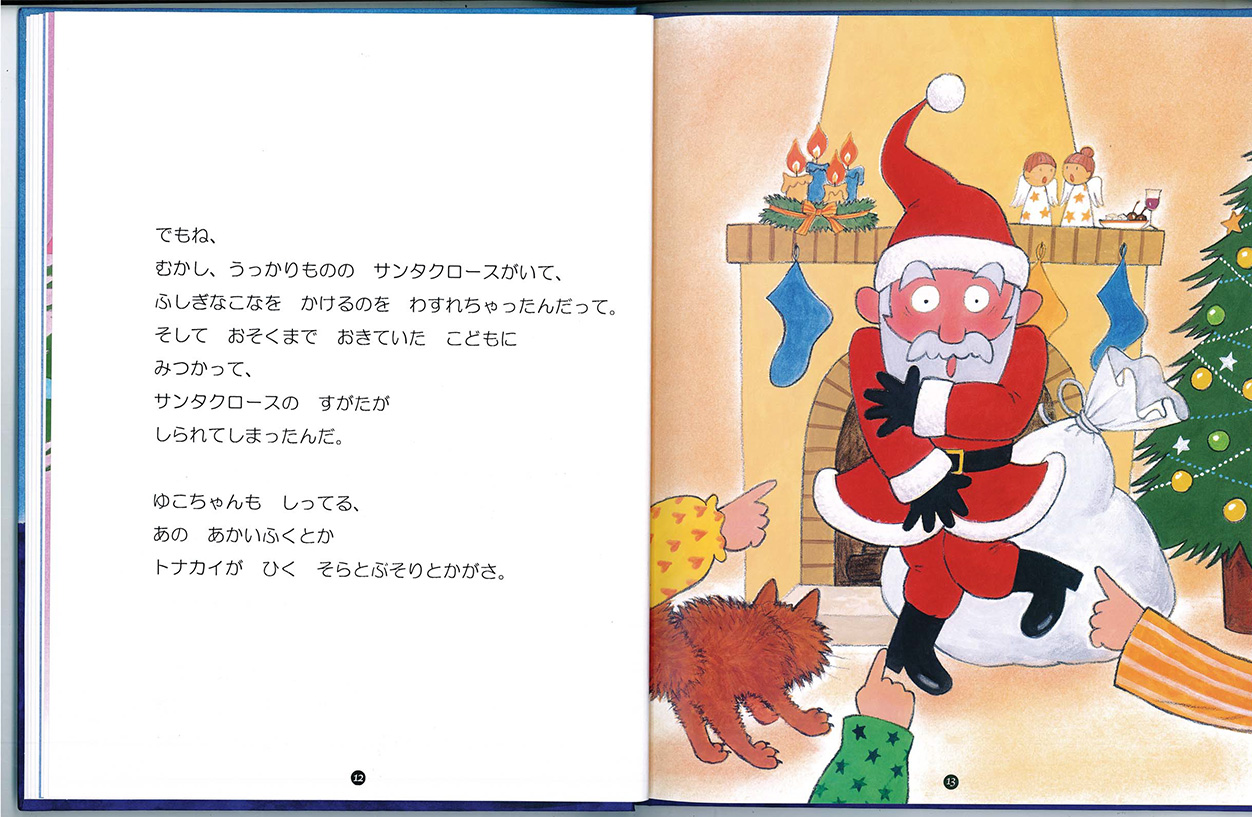 でもね、
むかし、うっかりものの　サンタクロースがいて、
ふしぎなこなを　かけるのを　わすれちゃったんだって。
そして　おそくまで　おきていた　こどもに
みつかって、
サンタクロースの　すがたが
しられてしまったんだ。
ゆこちゃんも　しってる、
あの　あかいふくとか
トナカイが　ひく　そらとぶそりとかがさ。
12
13